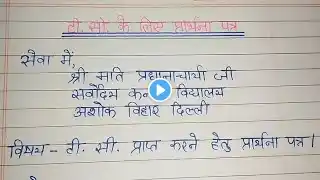 टी. सी. के लिए प्रार्थना पत्र
सेवा में,
श्री मति प्रधानाचार्या जी
सर्वोदय कन्या विद्यालय
अशोक विहार दिल्ली
विषय - टी. सी. प्राप्त करने हेतु प्रार्थना पत्र।